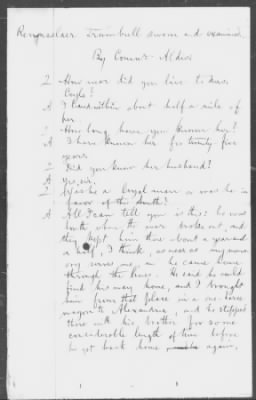 Rensselaer Trumbull sworn and examined.
By Commr. Aldis
Q How near did you live to Mrs.
Coyle?
A I lived within about half a mile of
her.
Q How long have you known her?
A I have known her for twenty five
years.
Q Did you know her husband?
A Yes, sir.
Q Was he a loyal man or was he in
favor of the South?
A All I can tell you is this: he was
South when the war broke out, and
they kept him there about a year and
a half, I think, as near as my mem-
ory serves me, and he came home
through the lines. He said he could
find his way home, and I brought
him from that place in a one-horse
wagon to Alexandria, and he stopped
there with his brother for some
considerable length of time before
he got back home again.